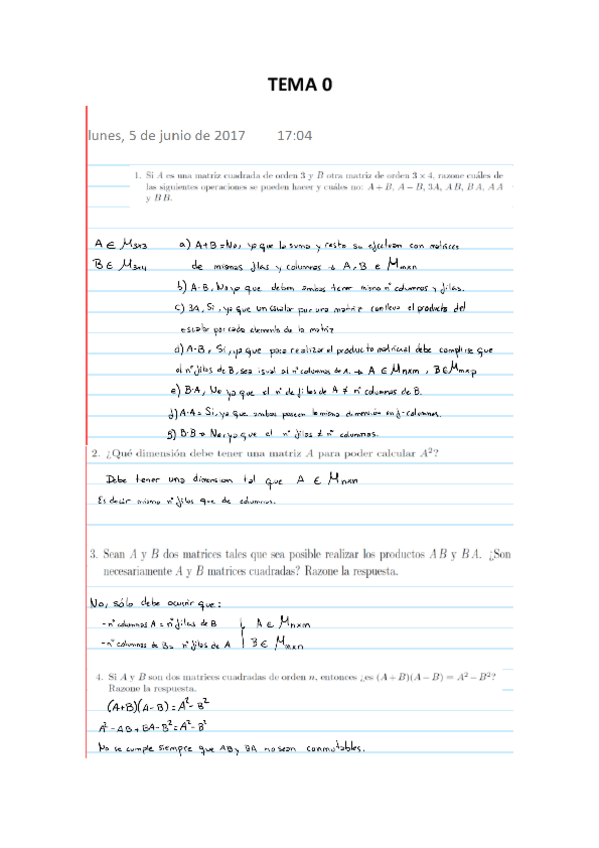 TEMA 0
lunes, 5 de junio de 2017 17:04
1. Si A es una matriz cuadrada de orden 3 y B otra matriz de orden 3 × 4, razone cuáles de
las siguientes operaciones se pueden hacer y cuáles no: A + B, A − B, 3A, A B, B A, A A
y B B.
A ∈ M3x3 a) A+B = No, ya que la suma y resta se efectuan con matrices
B ∈ M3x4 de mismas filas y columnas → A, B ∈ Mmxn
b) A-B, No ya que deben ambas tener mismo nº columnas y filas.
c) 3A, Si, ya que un escalar por una matriz conlleva el producto del
escalar por cada elemento de la matriz
d) A·B, Sí, ya que para realizar el producto matricial debe cumplirse que
el nº filas de B, sea igual al nº columnas de A. → A ∈ Mnxm, B∈Mmxp
e) B·A, No ya que el nº de filas de A ≠ nº columnas de B.
f) A·A = Si, ya que ambas poseen la misma dimensión en f-columnas.
g) B·B = No, ya que el nº filas ≠ nº columnas.
2. ¿Qué dimensión debe tener una matriz A para poder calcular A²?
Debe tener una dimension tal que A ∈ Mnxn
Es decir mismo nº filas que de columnas.
3. Sean A y B dos matrices tales que sea posible realizar los productos A B y B A. ¿Son
necesariamente A y B matrices cuadradas? Razone la respuesta.
No, sólo debe ocurrir que:
- nº columnas A = nº filas de B A ∈ Mnxm
- nº columnas de B = nº filas de A B ∈ Mmxn
4. Si A y B son dos matrices cuadradas de orden n, entonces ¿es (A + B)(A − B) = A² − B²?
Razone la respuesta.
(A+B)(A-B) = A²-B²
A²-AB+BA-B² = A²-B²
No se cumple siempre que AB y BA no sean conmutables.